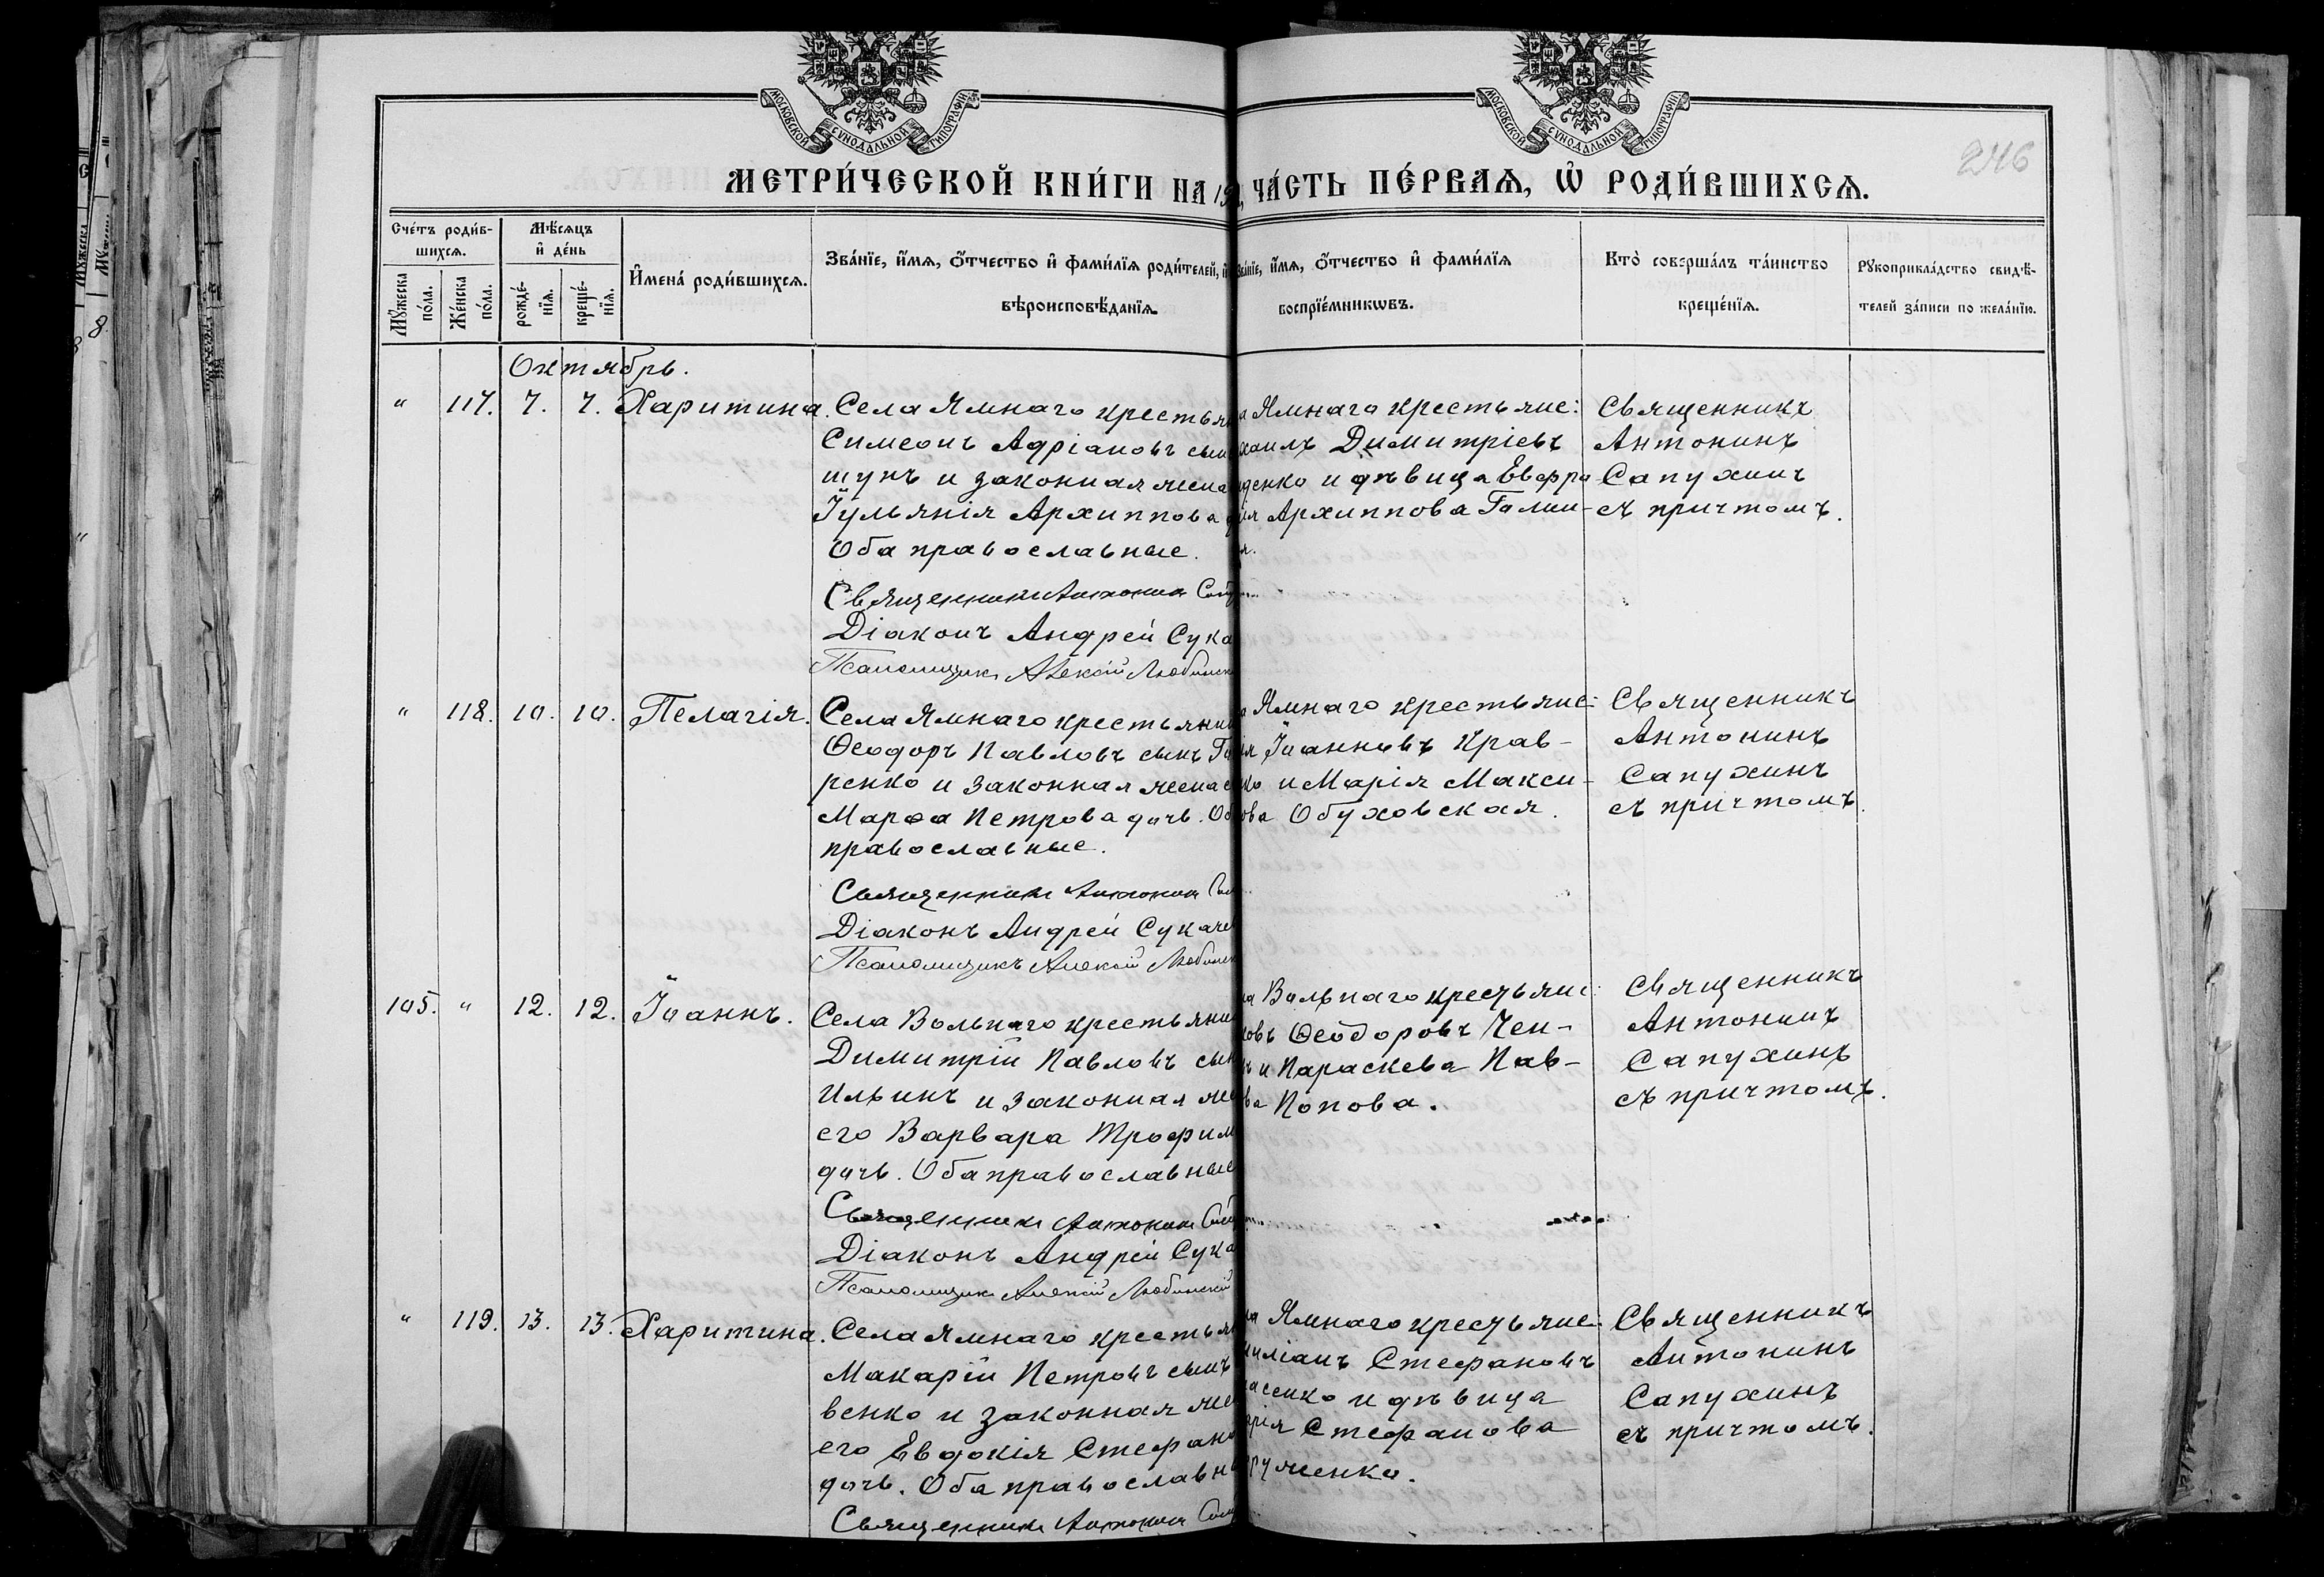 МОСКОВСКОЙ СУНОДАЛЬНОЙ ТИПОГРАФІИ
МОСКОВСКОЙ СУНОДАЛЬНОЙ ТИПОГРАФІИ
246
МЕТРИ́ЧЕСКОЙ КНИ́ГИ НА 19
ЧА́СТЬ ПЕ́РВАѦ, Ѡ҆ РОДИ́ВШИХСѦ.
Сче́тъ роди́в-
шихсѧ.
Мꙋ́жеска по́ла.
Же́нска по́ла.
Мѣ́сѧцъ
и҆ де́нь
рожде́-
нїѧ.
креще́-
нїѧ.
И҆мена̀ роди́вшихсѧ.
Зва́нїе, и҆́мѧ, ѻ҆́тчество и҆ фами́лїѧ роди́телей, и҆
вѣроисповѣ́данїѧ.
Зва́нїе, и҆́мѧ, ѻ҆́тчество и҆ фами́лїѧ
воспрїе́мникѡвъ.
Кто̀ соверша́лъ та́инство
креще́нїѧ.
Рꙋкоприкла́дство свидѣ́-
телей за́писи по жела́нїю.
Октябрь.
" 117. 7. 7. Харитина.
Села Ямнаго крестьян
Симеонъ Адріановъ сын
шунъ и законная жена
Іульянія Архиппова д
Оба православные.
Священникъ Антонин Сап
Діаконъ Андрей Сука
Псаломщикъ Алексій Любинск
а Ямнаго крестьяне:
хаилъ Димитріевъ
денко и дѣвица Евфро
ія Архиппова Галши-
я.
Священникъ
Антонинъ
Сапухинъ
съ причтомъ.
" 118. 10. 10. Пелагія.
Села Ямнаго крестьянин
Ѳеодоръ Павловъ сынъ Го
ренко и законная жена е
Марѳа Петрова дочь. Об
православные.
Священникъ Антонин Сап
Діаконъ Андрей Сукаче
Псаломщикъ Алексій Любинск
а Ямнаго крестьяне:
ія Іоанновъ Крав-
ко и Марія Макси-
ова Обуховская.
Священникъ
Антонинъ
Сапухинъ
съ причтомъ.
105. " 12. 12. Іоаннъ.
Села Вольнаго крестьянин
Димитрій Павловъ сын
Ильинъ и законная же
его Варвара Трофим
дочь. Оба православные
Священникъ Антонин Сап
Діаконъ Андрей Сука
Псаломщикъ Алексій Любинскій
ла Вольнаго крестьяне:
ковъ Ѳеодоровъ Чен-
ъ и Параскева Пав-
ва Попова.
Священникъ
Антонинъ
Сапухинъ
съ причтомъ.
" 119. 13. 13. Харитина.
Села Ямнаго крестьян
Макарій Петровъ сынъ
венко и законная же
его Евдокія Стефано
дочь. Оба православны
Священникъ Антонин Сап
ла Ямнаго крестьяне:
миліанъ Стефановъ
асенко и дѣвица
арія Стефанова
руженко.
Священникъ
Антонинъ
Сапухинъ
съ причтомъ.